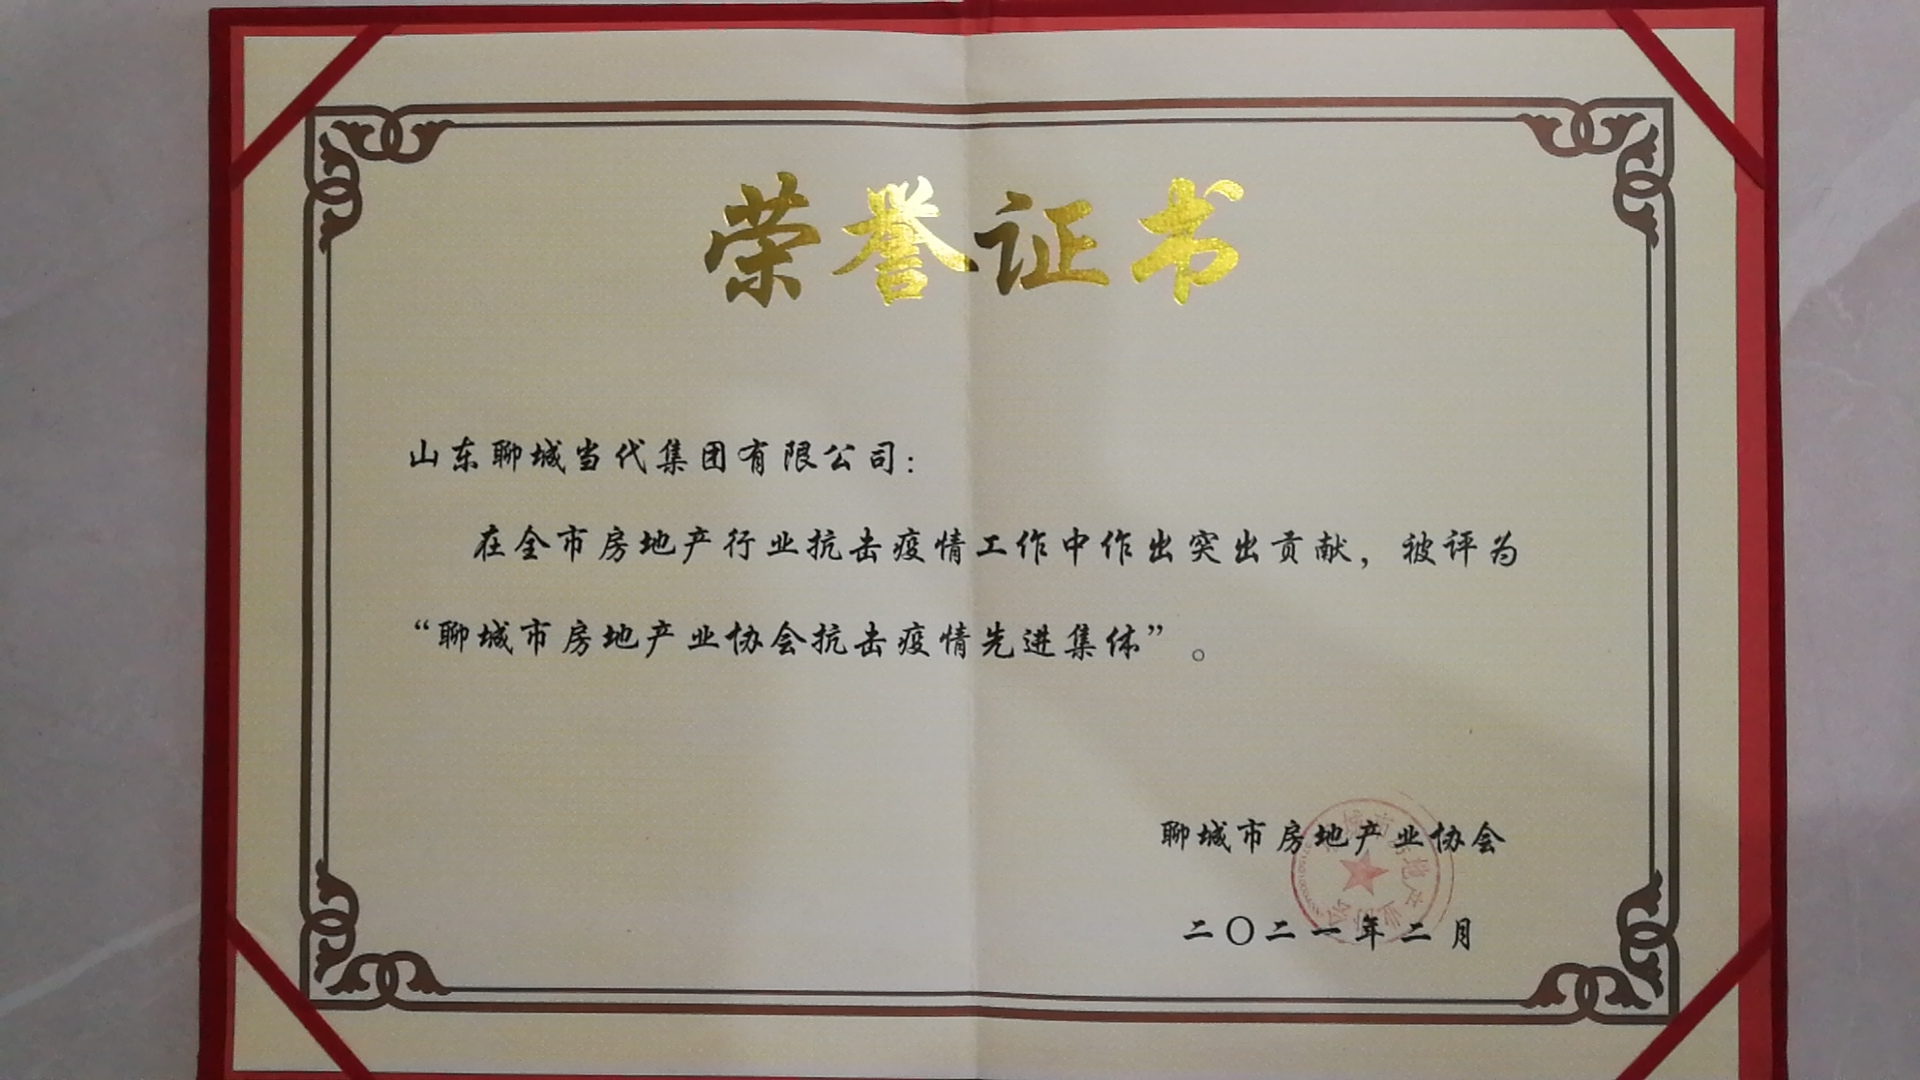 荣誉证书
山东聊城当代集团有限公司：
在全市房地产行业抗击疫情工作中作出突出贡献，被评为
“聊城市房地产业协会抗击疫情先进集体”。
聊城市房地产业协会
二〇二一年二月